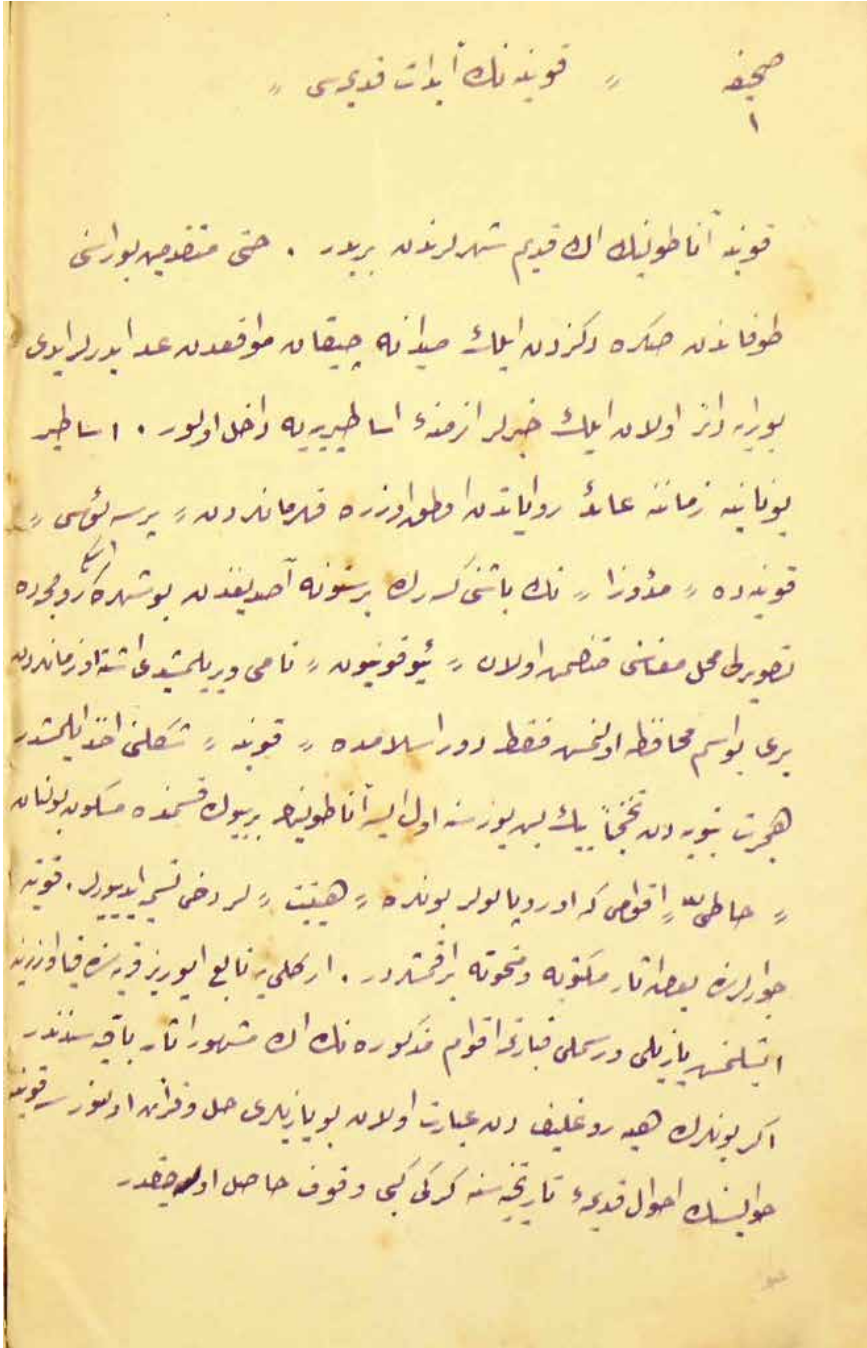 صحیفه
١
« قونیه نك آبدات قدیمه سی »
قونیه آناطولینك اك قدیم شهرلرندن بریدر . حتی متقدمین بوراسنی
طوفاندن صكره دكزدن ایلك میدانه چیقان مواقعدن عد ایدرلر ایدی
بورایه دائر اولان ایلك خبرلر ازمنهٔ اساطیریه یه داخل اولور . اساطیر
یونانیه زماننه عائد روایاتدن اولمق اوزره قهرماندن « پرسه ئوس »
قونیه ده « مدوزا » نك باشنی كسه رك برستونه آصدیغندن بو شهره رومجه ده
تصویرلی محل معناسنی متضمن اولان « ئیوقونیون » نامی ویریلمشیدی اشته او زماندن
بری بو اسم محافظه اولنمش فقط دور اسلامده « قونیه » شكلنی اخذ ایلمشدر
هجرت نبویه دن تخمیناً بیك بش یوز سنه اول ایسه آناطولینك بر بیوك قسمنده مسكون بولنان
« حاطی » اقوامی كه اوروپالولر بونلره « هیتیت » لر دخی تسمیه ایدییورلر . قونیه
جوارلرنده بعض اثار مكتوبه و منحوته براقمشلردر . اركلی یه تابع ایوریز قریه سنده قیا اوزرینه
ایشلنمش یازیلی و رسملی قبارتمه اقوام مذكوره نك اك مشهور اثار باقیه سندندر
اكر بونلرك هیه روغلیف دن عبارت اولان بو یازیلری حل و قرائت اولنور سه قونیه
حوالیسنك احوال قدیمهٔ تاریخیه سنه كركی كبی وقوف حاصل اوله جقدر